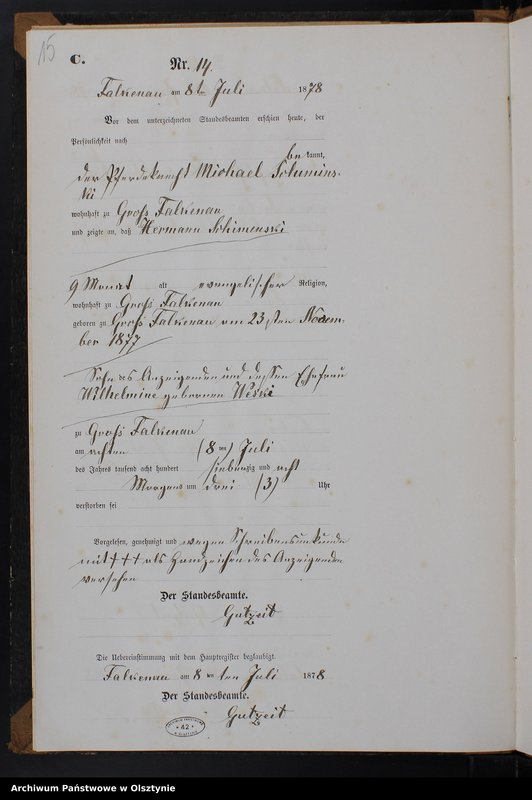 15
C.
Nr. 14.
Falkenau am 8ten Juli 1878
Vor dem unterzeichneten Standesbeamten erschien heute, der
Persönlichkeit nach
bekannt,
der Pferdeknecht Michael
ki
wohnhaft zu Groß Falkenau
und zeigte an, daß Hermann
9 Monat alt evangelischer Religion,
wohnhaft zu Groß Falkenau
geboren zu Groß Falkenau am 23sten Novem-
ber 1877
Sohn des Anzeigenden und dessen Ehefrau
Wilhelmine geborenen
zu Groß Falkenau
am achten (8ten) Juli
des Jahres tausend acht hundert siebenzig und acht
Morgens um drei (3) Uhr
verstorben sei
Vorgelesen, genehmigt und wegen Schreibensunkunde
mit +++ als Handzeichen des Anzeigenden
versehen
Der Standesbeamte.
Gutzeit
Die Uebereinstimmung mit dem Hauptregister beglaubigt.
Falkenau am 8ten Juli 1878
Der Standesbeamte.
Gutzeit
42
Archiwum Państwowe w Olsztynie